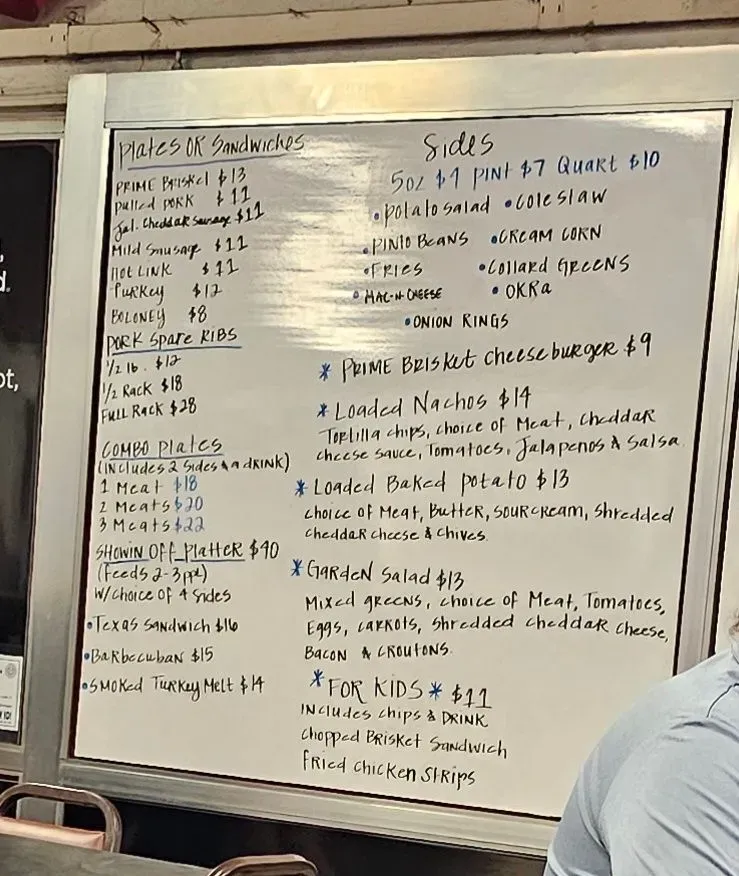 Plates OR Sandwiches
PRIME BRISKET $13
Pulled PORK $11
Jal. Cheddar Sausage $11
Mild Sausage $11
Hot LINK $11
Turkey $12
BOLONEY $8
PORK Spare RIBS
1/2 lb. $12
1/2 Rack $18
FULL Rack $28
COMBO Plates
(INCludes 2 Sides & a DRINK)
1 Meat $18
2 Meats $20
3 Meats $22
SHOWIN OFF Platter $40
(Feeds 2-3 ppl)
W/Choice OF 4 Sides
•Texas Sandwich $16
•Barbecuban $15
•SMOKed Turkey Melt $14
Sides
5oz $4 PINT $7 Quart $10
•Potato Salad •Cole Slaw
•PINTO BEANS •CREAM CORN
•FRIES •Collard GREENS
•MAC-N-CHEESE •OKRa
•ONION RINGS
* PRIME BRISKET Cheeseburger $9
* Loaded Nachos $14
Tortilla chips, choice of Meat, Cheddar
cheese sauce, Tomatoes, Jalapenos & Salsa.
* Loaded Baked Potato $13
choice of Meat, Butter, Sour cream, Shredded
cheddar cheese & chives.
* Garden Salad $13
Mixed greens, choice of Meat, Tomatoes,
Eggs, carrots, shredded cheddar cheese,
Bacon & Croutons.
* FOR KIDS * $11
Includes chips & DRINK
Chopped Brisket Sandwich
Fried Chicken Strips
d.
ot,